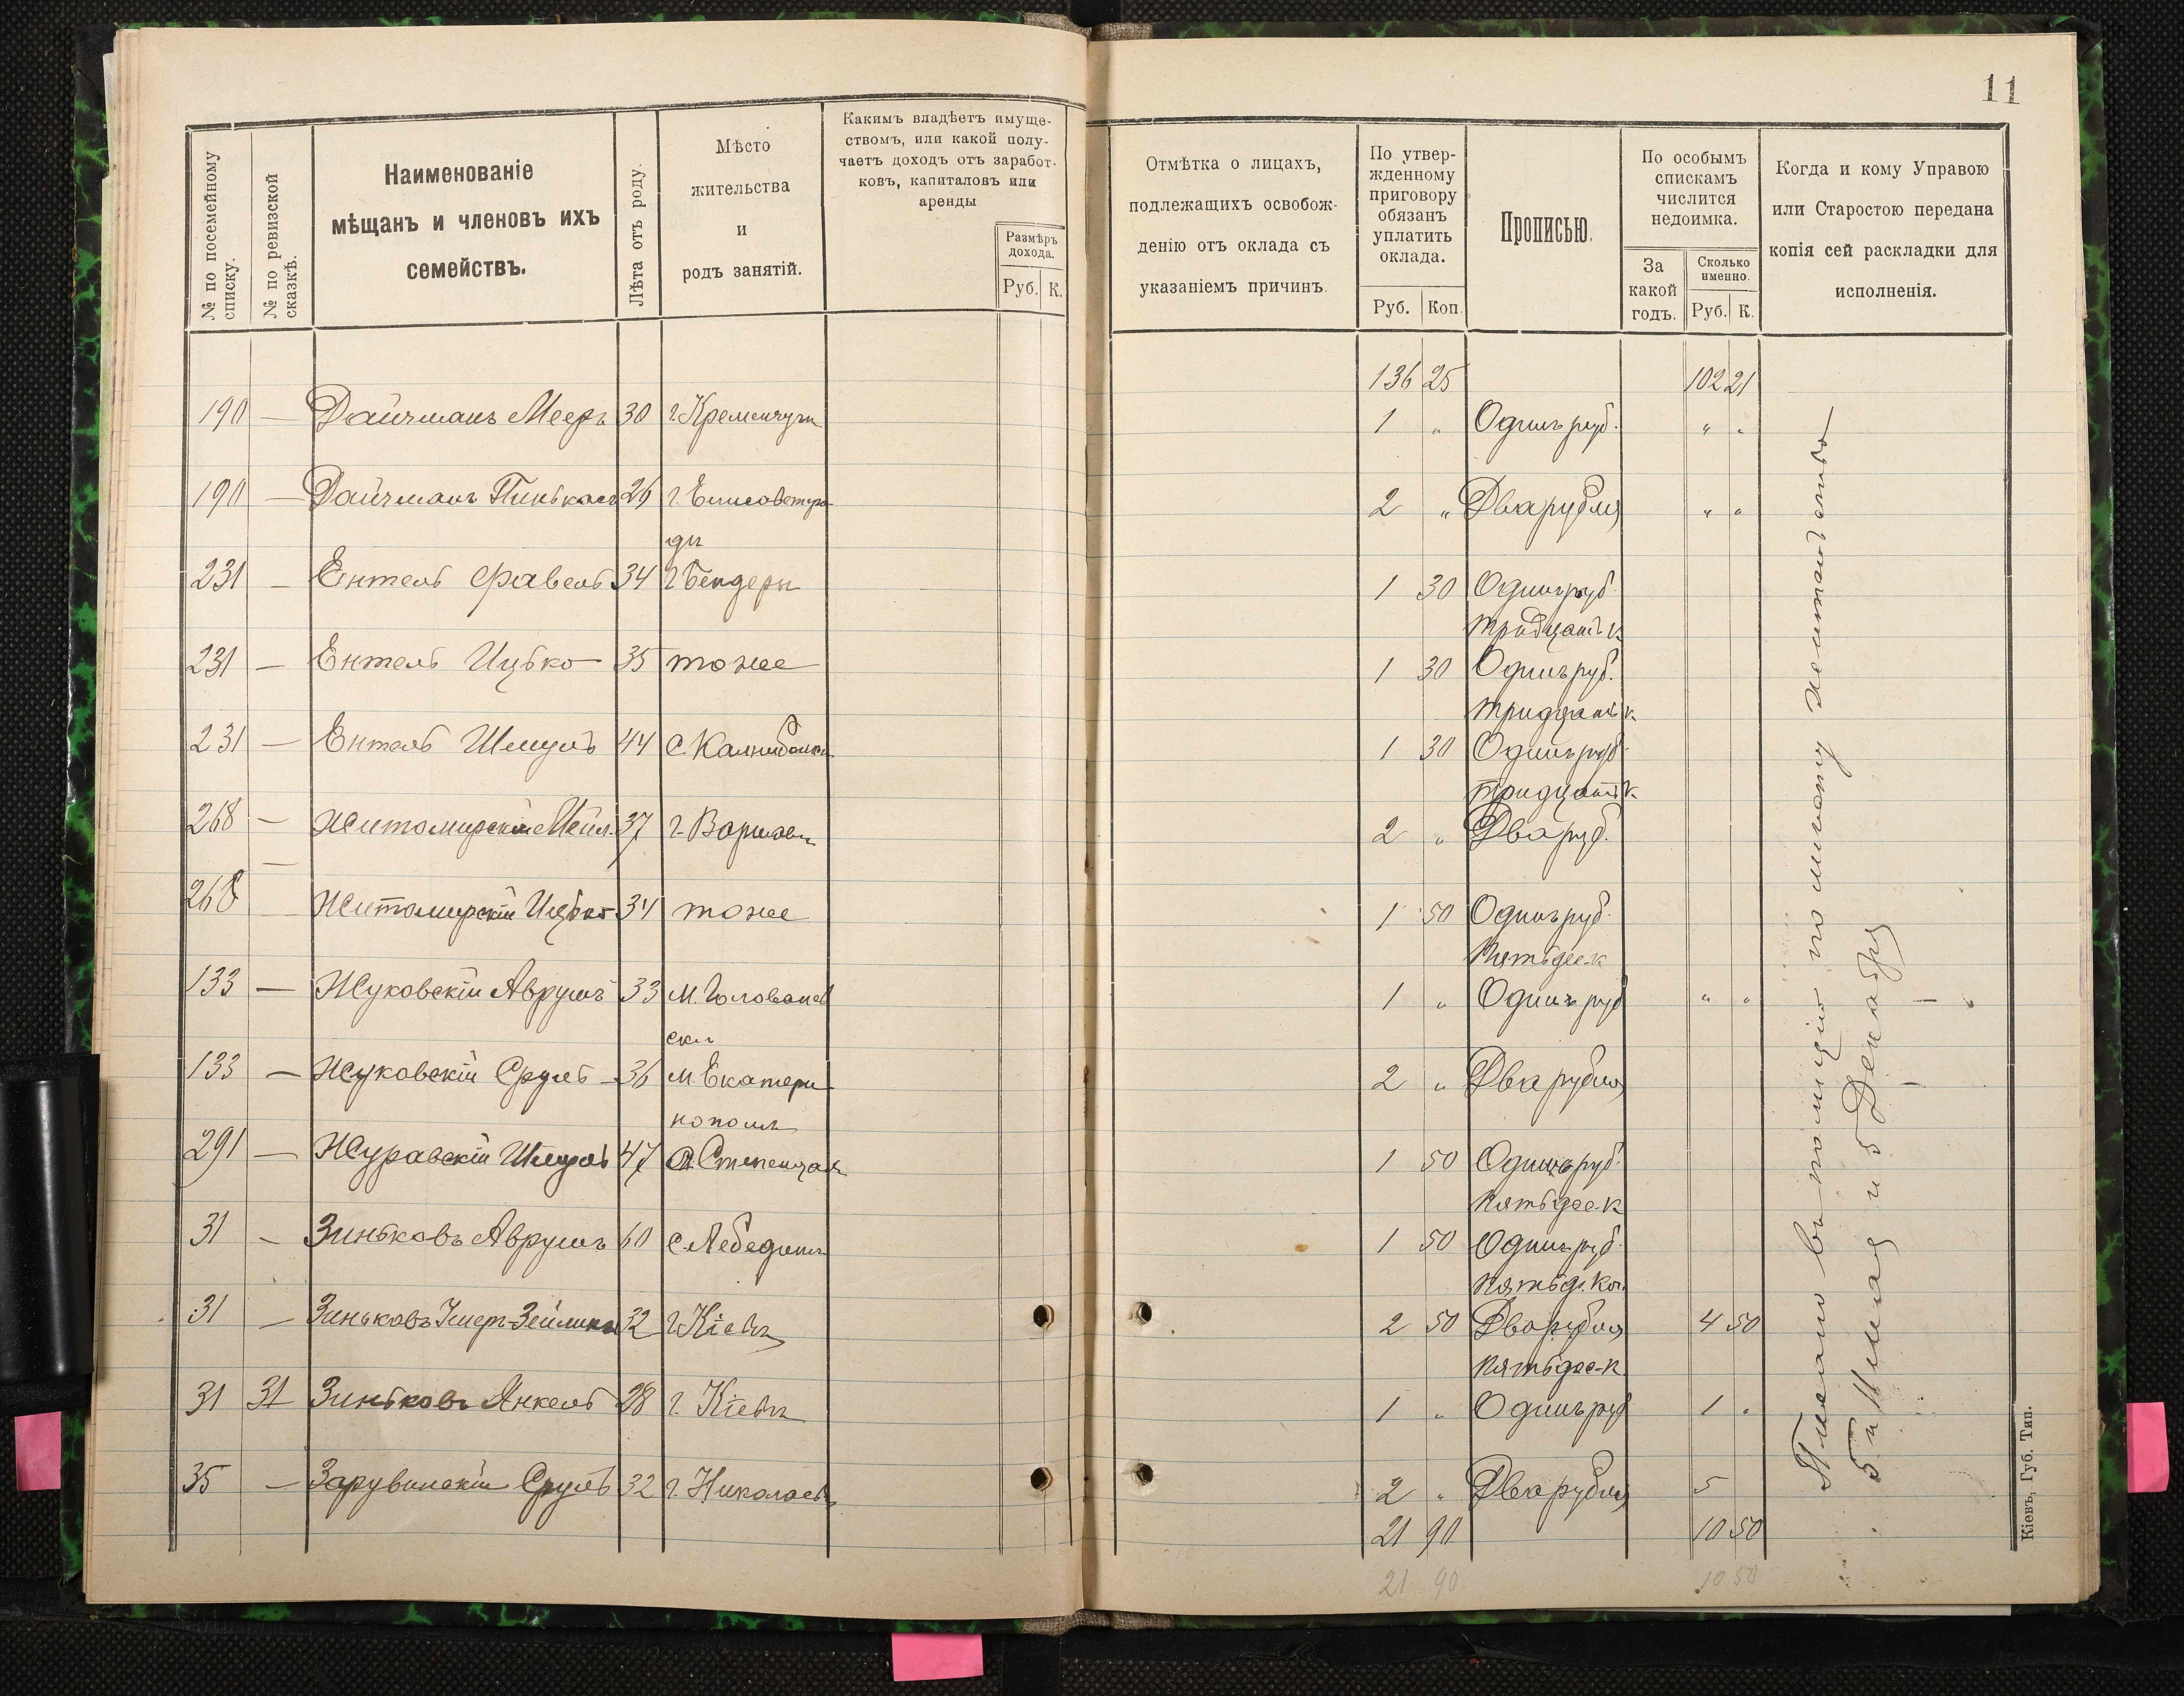 11
№ по посемейному списку.
№ по ревизской сказкѣ.
Наименованіе
мѣщанъ и членовъ ихъ
семействъ.
Лѣта отъ роду.
Мѣсто
жительства
и
родъ занятій.
Какимъ владѣетъ имуще-
ствомъ, или какой полу-
чаетъ доходъ отъ заработ-
ковъ, капиталовъ или
аренды
Размѣръ
дохода.
Руб. К.
Отмѣтка о лицахъ,
подлежащихъ освобож-
денію отъ оклада съ
указаніемъ причинъ
По утвер-
жденному
приговору
обязанъ
уплатить
оклада.
Руб. Коп.
Прописью.
По особымъ
спискамъ
числится
недоимка.
За
какой
годъ.
Сколько
именно.
Руб. К.
Когда и кому Управою
или Старостою передана
копія сей раскладки для
исполненія.
136 25 102 21
190 — Дайчманъ Мееръ 30 г. Кременчугъ 1 „ Одинъ руб. „ „
190 — Дайчманъ Пинькасъ 26 г. Елисаветгра- 2 „ Два рубля „ „
дъ
231 — Ентель Фавель 34 г. Бендеры 1 30 Одинъ руб.
тридцать к
231 — Ентель Ицько 35 тоже 1 30 Одинъ руб.
тридцать к.
231 — Ентель Шмуль 44 с. 1 30 Одинъ руб.
тридцать к.
268 — Житомирскій 37 г. Варшава 2 „ Два руб.
268 — Житомирскій Ицько 34 тоже 1 50 Одинъ руб.
Пятьдес. к
133 — Жуковскій Аврумъ 33 м. Голованев 1 „ Одинъ руб „ „
скъ
133 — Жуковскій Сруль 36 м. Екатери- 2 „ Два рубля
нополь
291 — Журавскій Шмуль 47 1 50 Одинъ руб.
пятьдес. к
31 — Зиньковъ Аврумъ 60 с. Лебединъ 1 50 Одинъ руб.
пятьд. коп.
31 — Зиньковъ Зейликъ 32 г. Кіевъ 2 50 Два рубля 4 50
пятьдес. к
31 31 Зиньковъ Янкель 28 г. Кіевъ 1 „ Одинъ руб 1 „
35 — Зарувинскій Сруль 32 г. Николаевъ 2 „ Два рубля 5
21 90 10 50
21 90 10 50
Писано въ полицію по
и 5 Декабря
Кіевъ, Губ. Тип.